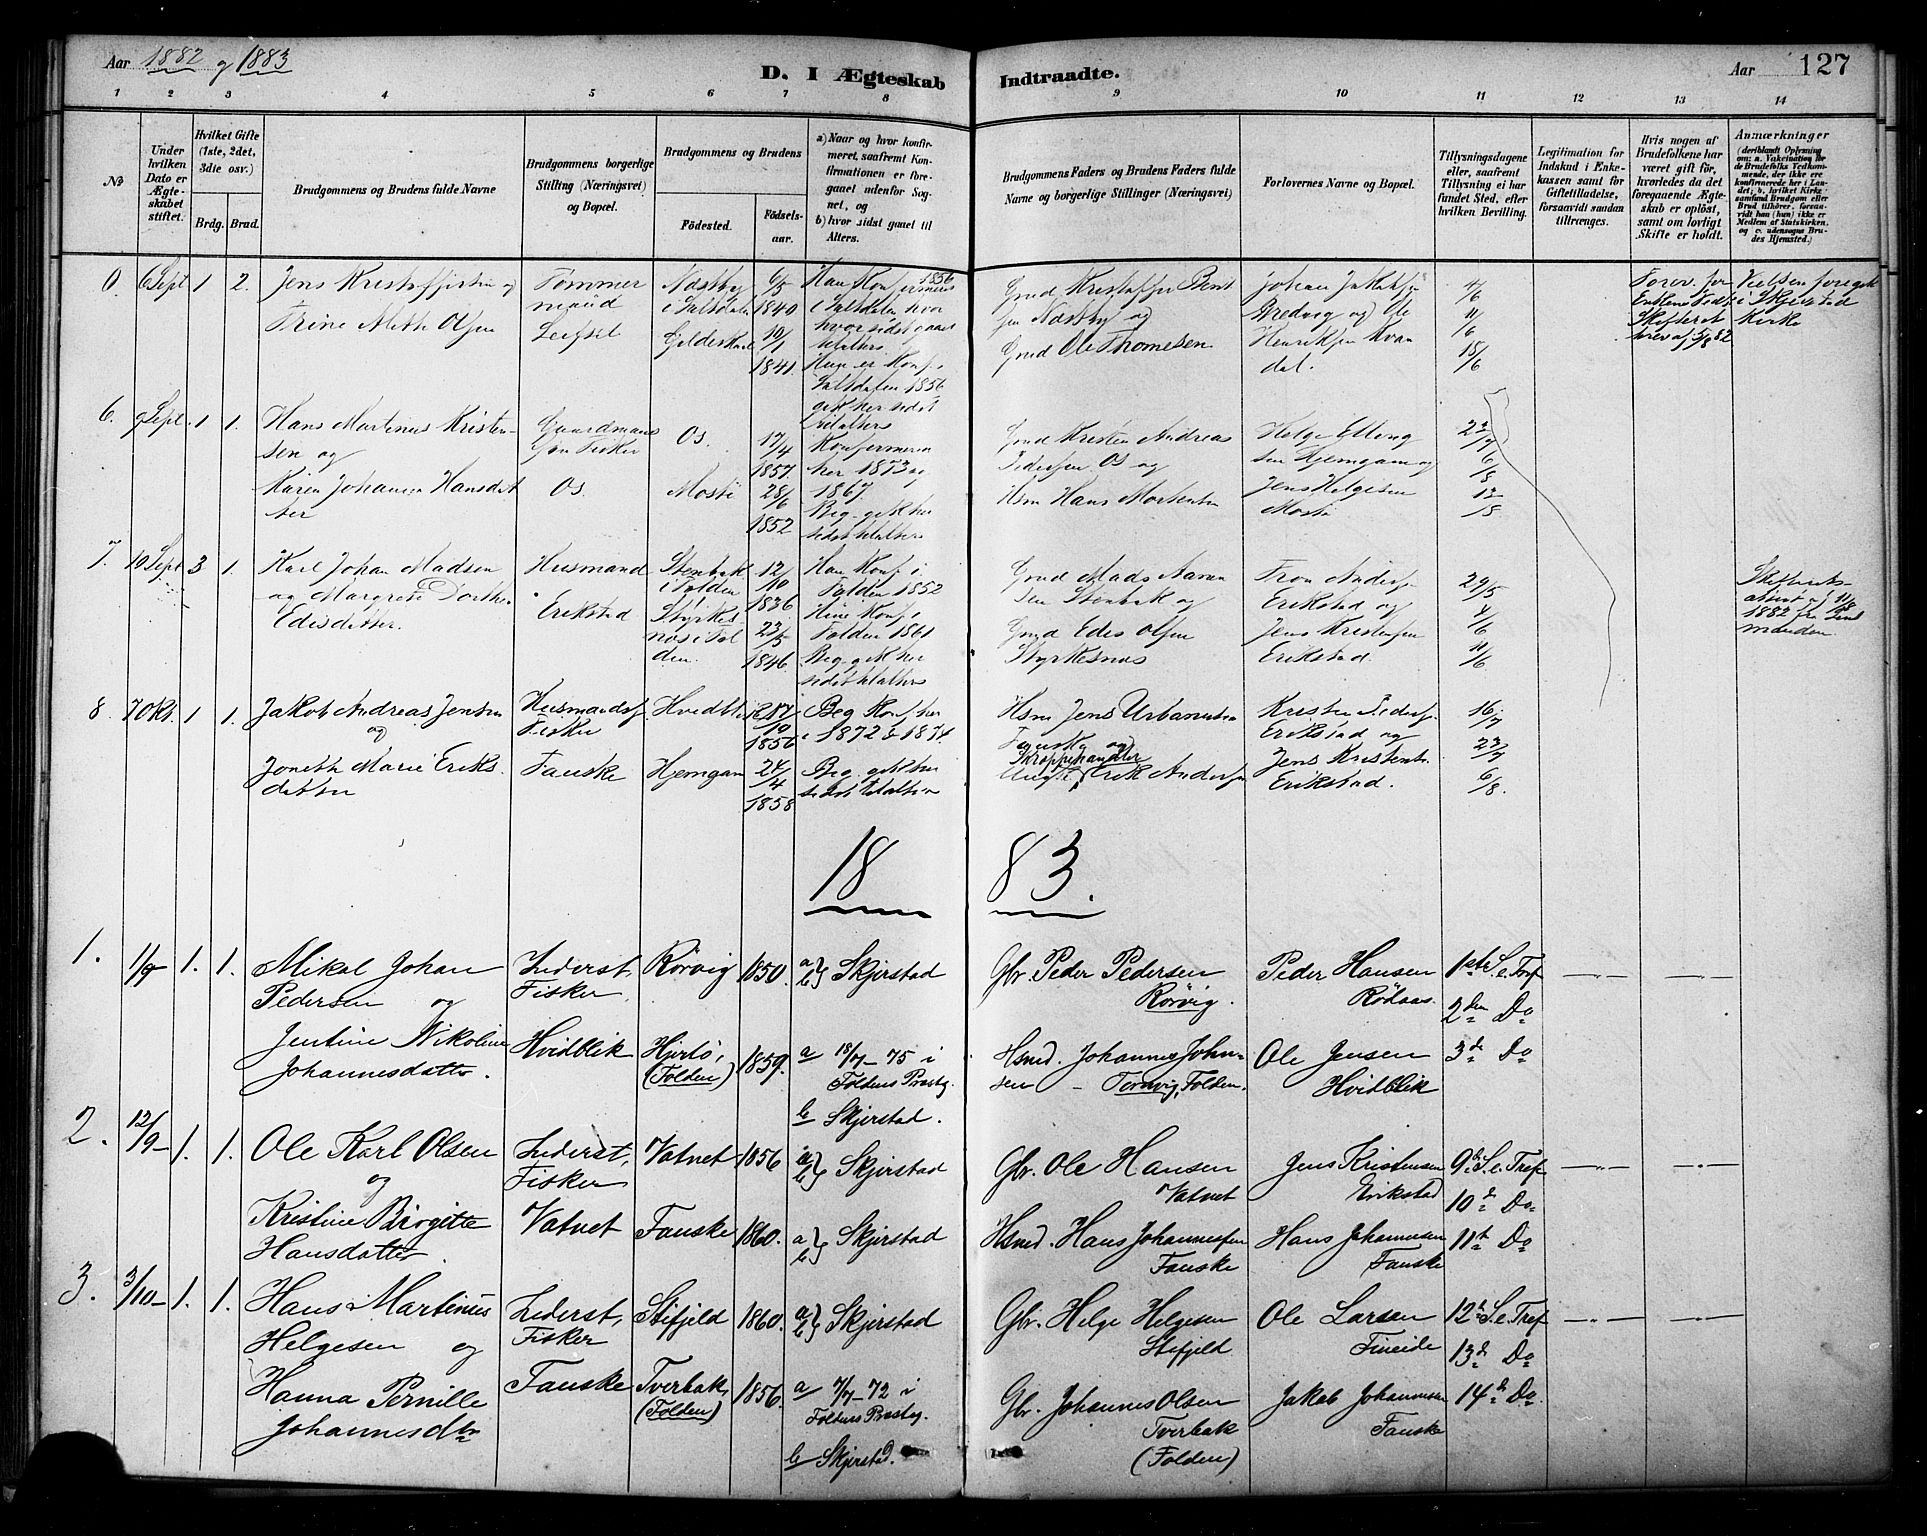 Aar 1882 og 1883
D. I Ægteskab Indtraadte.
Aar 127
1 2 3 4 5 6 7 8 9 10 11 12 13 14
No
Under hvilken Dato er Ægteskabet stiftet.
Hvilket Gifte (1ste, 2det, 3die osv.)
Brdg. Brud.
Brudgommens og Brudens fulde Navne
Brudgommens borgerlige Stilling (Næringsvei) og Bopæl.
Brudgommens og Brudens
Fødested. Fødselsaar.
a) Naar og hvor konfirmeret, saafremt Konfirmationen er foregaaet udenfor Sognet, og
b) hvor sidst gaaet til Alters.
Brudgommens Faders og Brudens Faders fulde Navne og borgerlige Stillinger (Næringsvei)
Forlovernes Navne og Bopæl.
Tillysningsdagene eller, saafremt Tillysning ei har fundet Sted, efter hvilken Bevilling.
Legitimation for Indskud i Enkekassen samt for Giftetilladelse, forsaavidt saadan tiltrænges.
Hvis nogen af Brudefolkene har været gift før, hvorledes da det foregaaende Ægteskab er opløst, samt om lovligt Skifte er holdt.
Anmærkninger (deriblandt Oplysning om: a. Vakcination for de Brudefolks Vedkommende, der ikke ere konfirmerede her i Landet; b. hvilket Kirkesamfund Brudgom eller Brud tilhører, forsaavidt han (hun) ikke er Medlem af Statskirken, og c. udensogns Brudes Hjemsted.)
6 Sept 1 2. Jens Kristoffersen og
Trine Meth Olsen
Tømmermand Leifset
i Saltdalen 6/5 1840
1841.
Konfirmeret 1856 i Saltdalen
Hun er Konf. i Saltdalen 1856
gik her sidst til alters
Gmd Kristoffer Bent
sen Næstby og
Gmd Ole Thomesen
Johan Jakobsen
Bredvig og Ole
Henriksen Kvandal.
4/6 11/6 18/6
Vielsen foregik i Skjerstad Kirke
6. 9 Sept. 1 1. Hans Martinus Kristen-
sen og
Karen Johanna Hansdatter
Gaardmands Søn Fisker Os.
Os. 17/4 1857
28/6 1852
her 1873 og 1867.
Beg. gik her sidst til alters
Gmd Kristen Andreas
Pedersen Os og
Hsm Hans Mortensen
Helge Ellingsen Hjemgam og
Jens Helgesen
23/7 6/8 13/8
7. 10 Sept 3 1. Karl Johan Madsen
og Margrete Dorthea
Edisdatter.
Husmand Erikstad
Stenbak i Folden 12/10 1836
Styrkesnæs i Folden. 23/5 1846
Han Konf i Folden 1852
Folden 1861
Beg. gik her sidst til alters
Gmd Mads Aaronsen Stenbak og
Gmd Edis Olsen
Styrkesnæs
Tron Andersen
Erikstad og
Jens Kristensen
Erikstad.
29/5 4/6 11/6
8. 7 Okt. 1 1. Jakob Andreas Jensen
og
Joneth Marie Eriksdatter
Husmandss. Fisker
Fauske
10 1856
Hjemgam 24/4 1858
Beg Konf her
i 1872 & 1874.
Beg. gik her
sidst til alters
Hsm Jens Urbanusen
Fauske og
Skroppehandler
Erik Andersen
Kristen Peders.
Erikstad og
Jens Kristensen
Erikstad.
16/7 23/7 6/8.
18 83.
1. 1/9 1. 1. Mikal Johan
Pedersen og
Jentine Nikoline
Johannesdatter.
Inderst, Fisker
Hvidblik
Rørvig 1850.
Hjertø, (Folden) 1859.
a b} Skjerstad
a 18/7–75 i Foldens Præstg.
b Skjerstad.
Gbr. Peder Pedersen
Rørvig.
Hsmd. Johannes Johnsen – Tornvig, Folden.
Peder Hansen
Rødaas.
Ole Jensen
Hvidblik
1ste S. e. Tref
2den Do
3de Do
2. 12/9 1. 1. Ole Karl Olsen
og
Kristine Birgitte
Hansdatter.
Inderst, Fisker
Vatnet
Vatnet 1856
Fauske 1860.
a b} Skjerstad
a b} Skjerstad
Gbr. Ole Hansen
Vatnet
Hsmd. Hans Johannessen
Fauske
Jens Kristensen
Erikstad
Hans Johannesen
Fauske
9de S. e. Tref
10de Do
11te Do
3. 3/10 1. 1. Hans Martinus
Helgesen og
Hanna Pernille
Johannesdtr
Inderst, Fisker
Fauske
Stifjeld 1860.
Tverbak, (Folden) 1856.
a b} Skjerstad
a 7/7–72 i Foldens Præstg.
b Skjerstad.
Gbr. Helge Helgesen
Stifjeld
Gbr. Johannes Olsen
Tverbak
(Folden)
Ole Larsen
Fineide
Jakob Johannesen
Fauske
12te S. e. Tref
13de Do
14de Do.